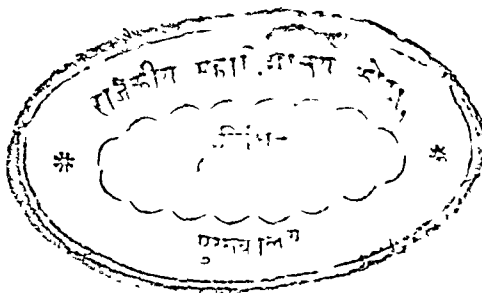 राजकीय महाविद्यालय कोटा
पुस्तकालय